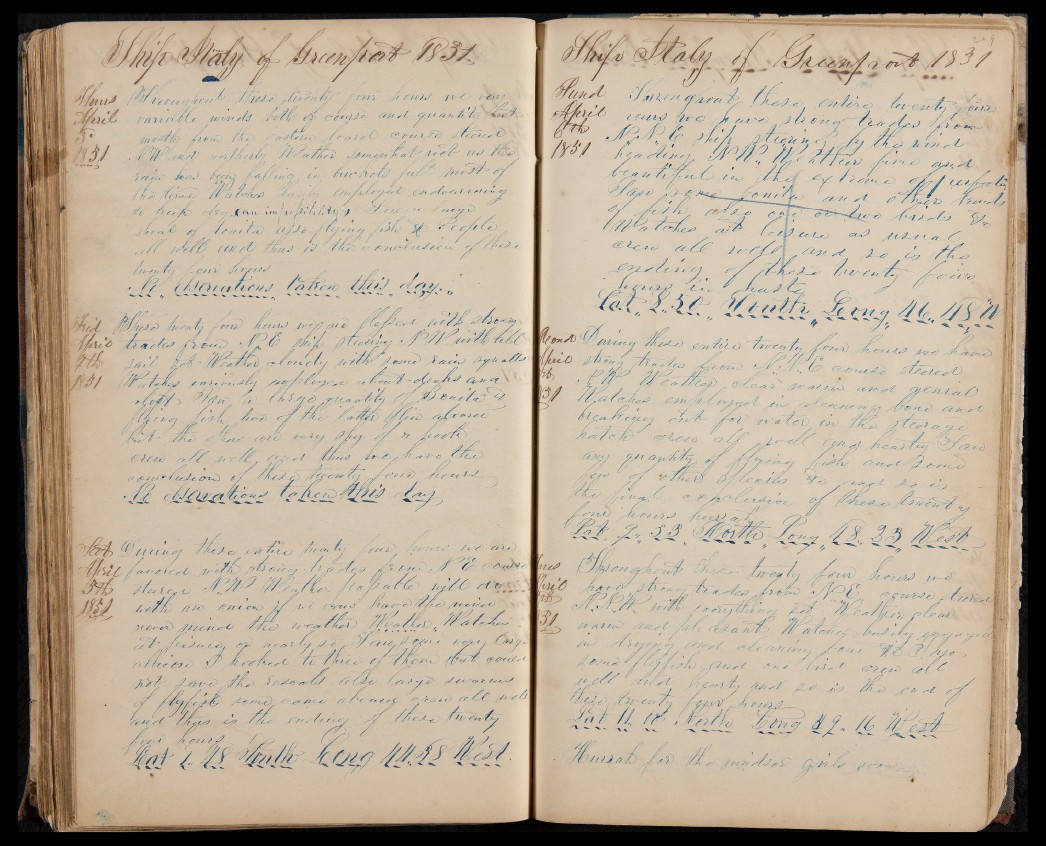 Ship Italy of Greenport 1851.
Thurs
April
3d
1851
Throughout these twenty four hours we have
variable winds both of course and quantity
mostly from the eastern board course steered
NW and northerly Weather somewhat
rain has been falling in torrents full most of
the time Watches employed endeavouring
to keep dry an impossibility Saw a large
shoal of bonita also flying fish & People
all well and thus is the conclusion of these
twenty four hours
No Observations taken this day
Frid
April
4th
1851
These twenty four hours we are blessed with strong
trades from NE ship steering NW with all
sail set Weather cloudy with some rain squalls
Watches variously employed about decks and
aloft Saw a large quantity of Bonita &
flying fish two of the latter flew aboard
but the are very shy of a hook
crew all well and thus we have the
conclusion of these twenty four hours
No observations taken this day
Sat
April
5th
1851
During these entire twenty four hours we are
favored with strong trades from NE course
steered NW Weather
with an onion if we can have the wind
never mind the weather Weather Watches
at leisure or nearly so Saw some very large
albicore I hooked to three of them but could
not save the rascals also large swarms
of flyfish some came aboard crew all well
and thus is the ending of these twenty
four hours
Lat 1.48 North Long 44.58 West
Ship Italy of Greenport 1851
Sund
April
6th
1851
Throughout these entire twenty four
hours we have strong trades from
N.N.E ship steering by the wind
heading NW Weather fine and
beautiful in the extreme of perfection
Saw some bonita and other kinds
of fish also one or two birds &c
Watches at leisure as usual
crew all well and so is the
ending of these twenty four
hours in haste
Lat 8.50 North Long 46.48 W
Mond
April
1851
During these entire twenty four hours we have
strong trades from N.N.E course steered
NW Weather clear warm and genial
Watches employed in cleaning bone and
breaking out for water in the steerage
hatch crew all well and hearty Saw
any quantity of flying fish and some
few of other species &c and so is
the final conclusion of these twenty
four hours
Lat 9.53 North Long 48.33 West
Tues
April
8th
1851
Throughout these twenty four hours we
have strong trades from NE course steered
N.NW with everything set Weather clear
warm and pleasant Watches busily engaged
in drying and cleaning bone
some flyfish and one bird crew all
well and hearty and so is the end of
these twenty four hours
Lat 11.10 North Long 49.16 West
Hurrah for the windsor girls